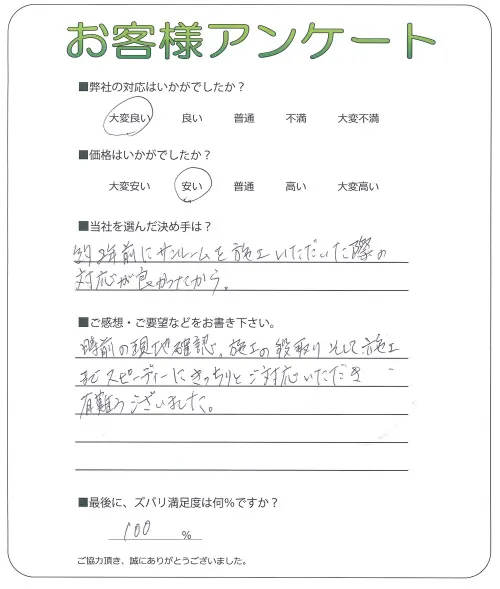 お客様アンケート
■弊社の対応はいかがでしたか？
大変良い 良い 普通 不満 大変不満
■価格はいかがでしたか？
大変安い 安い 普通 高い 大変高い
■当社を選んだ決め手は？
約2年前にサンルームを施工いただいた際の
対応が良かったから。
■ご感想・ご要望などをお書き下さい。
前の現地確認、施工の段取りそして施工
までスピーディーにきっちりとご対応いただき
有難うございました。
■最後に、ズバリ満足度は何%ですか？
100 %
ご協力頂き、誠にありがとうございました。